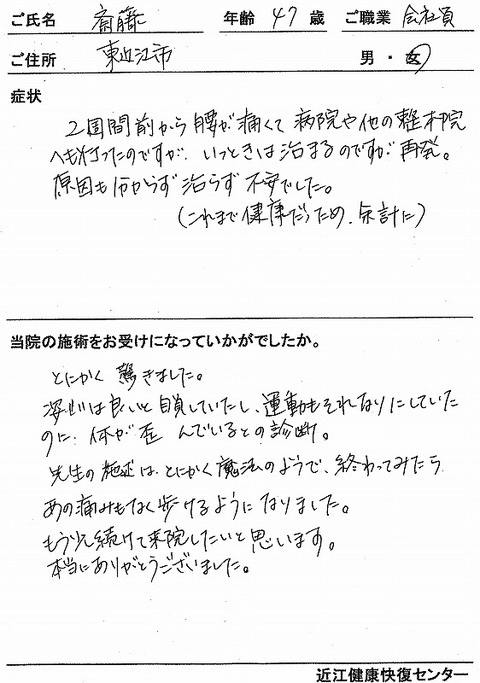 ご氏名 斎藤 年齢 47 歳 ご職業 会社員
ご住所 東近江市 男・女
症状
2週間前から腰が痛くて病院や他の整体院
へも行ったのですが、いっときは治まるのですが再発。
原因も分からず治らず不安でした。
(これまで健康だったため、余計に)
当院の施術をお受けになっていかがでしたか。
とにかく驚きました。
姿勢は良いと自負していたし、運動もそれなりにしていた
のに、体が歪んでいるとの診断。
先生の施術は、とにかく魔法のようで、終わってみたら
あの痛みもなく歩けるようになりました。
もう少し続けて来院したいと思います。
本当にありがとうございました。
近江健康快復センター